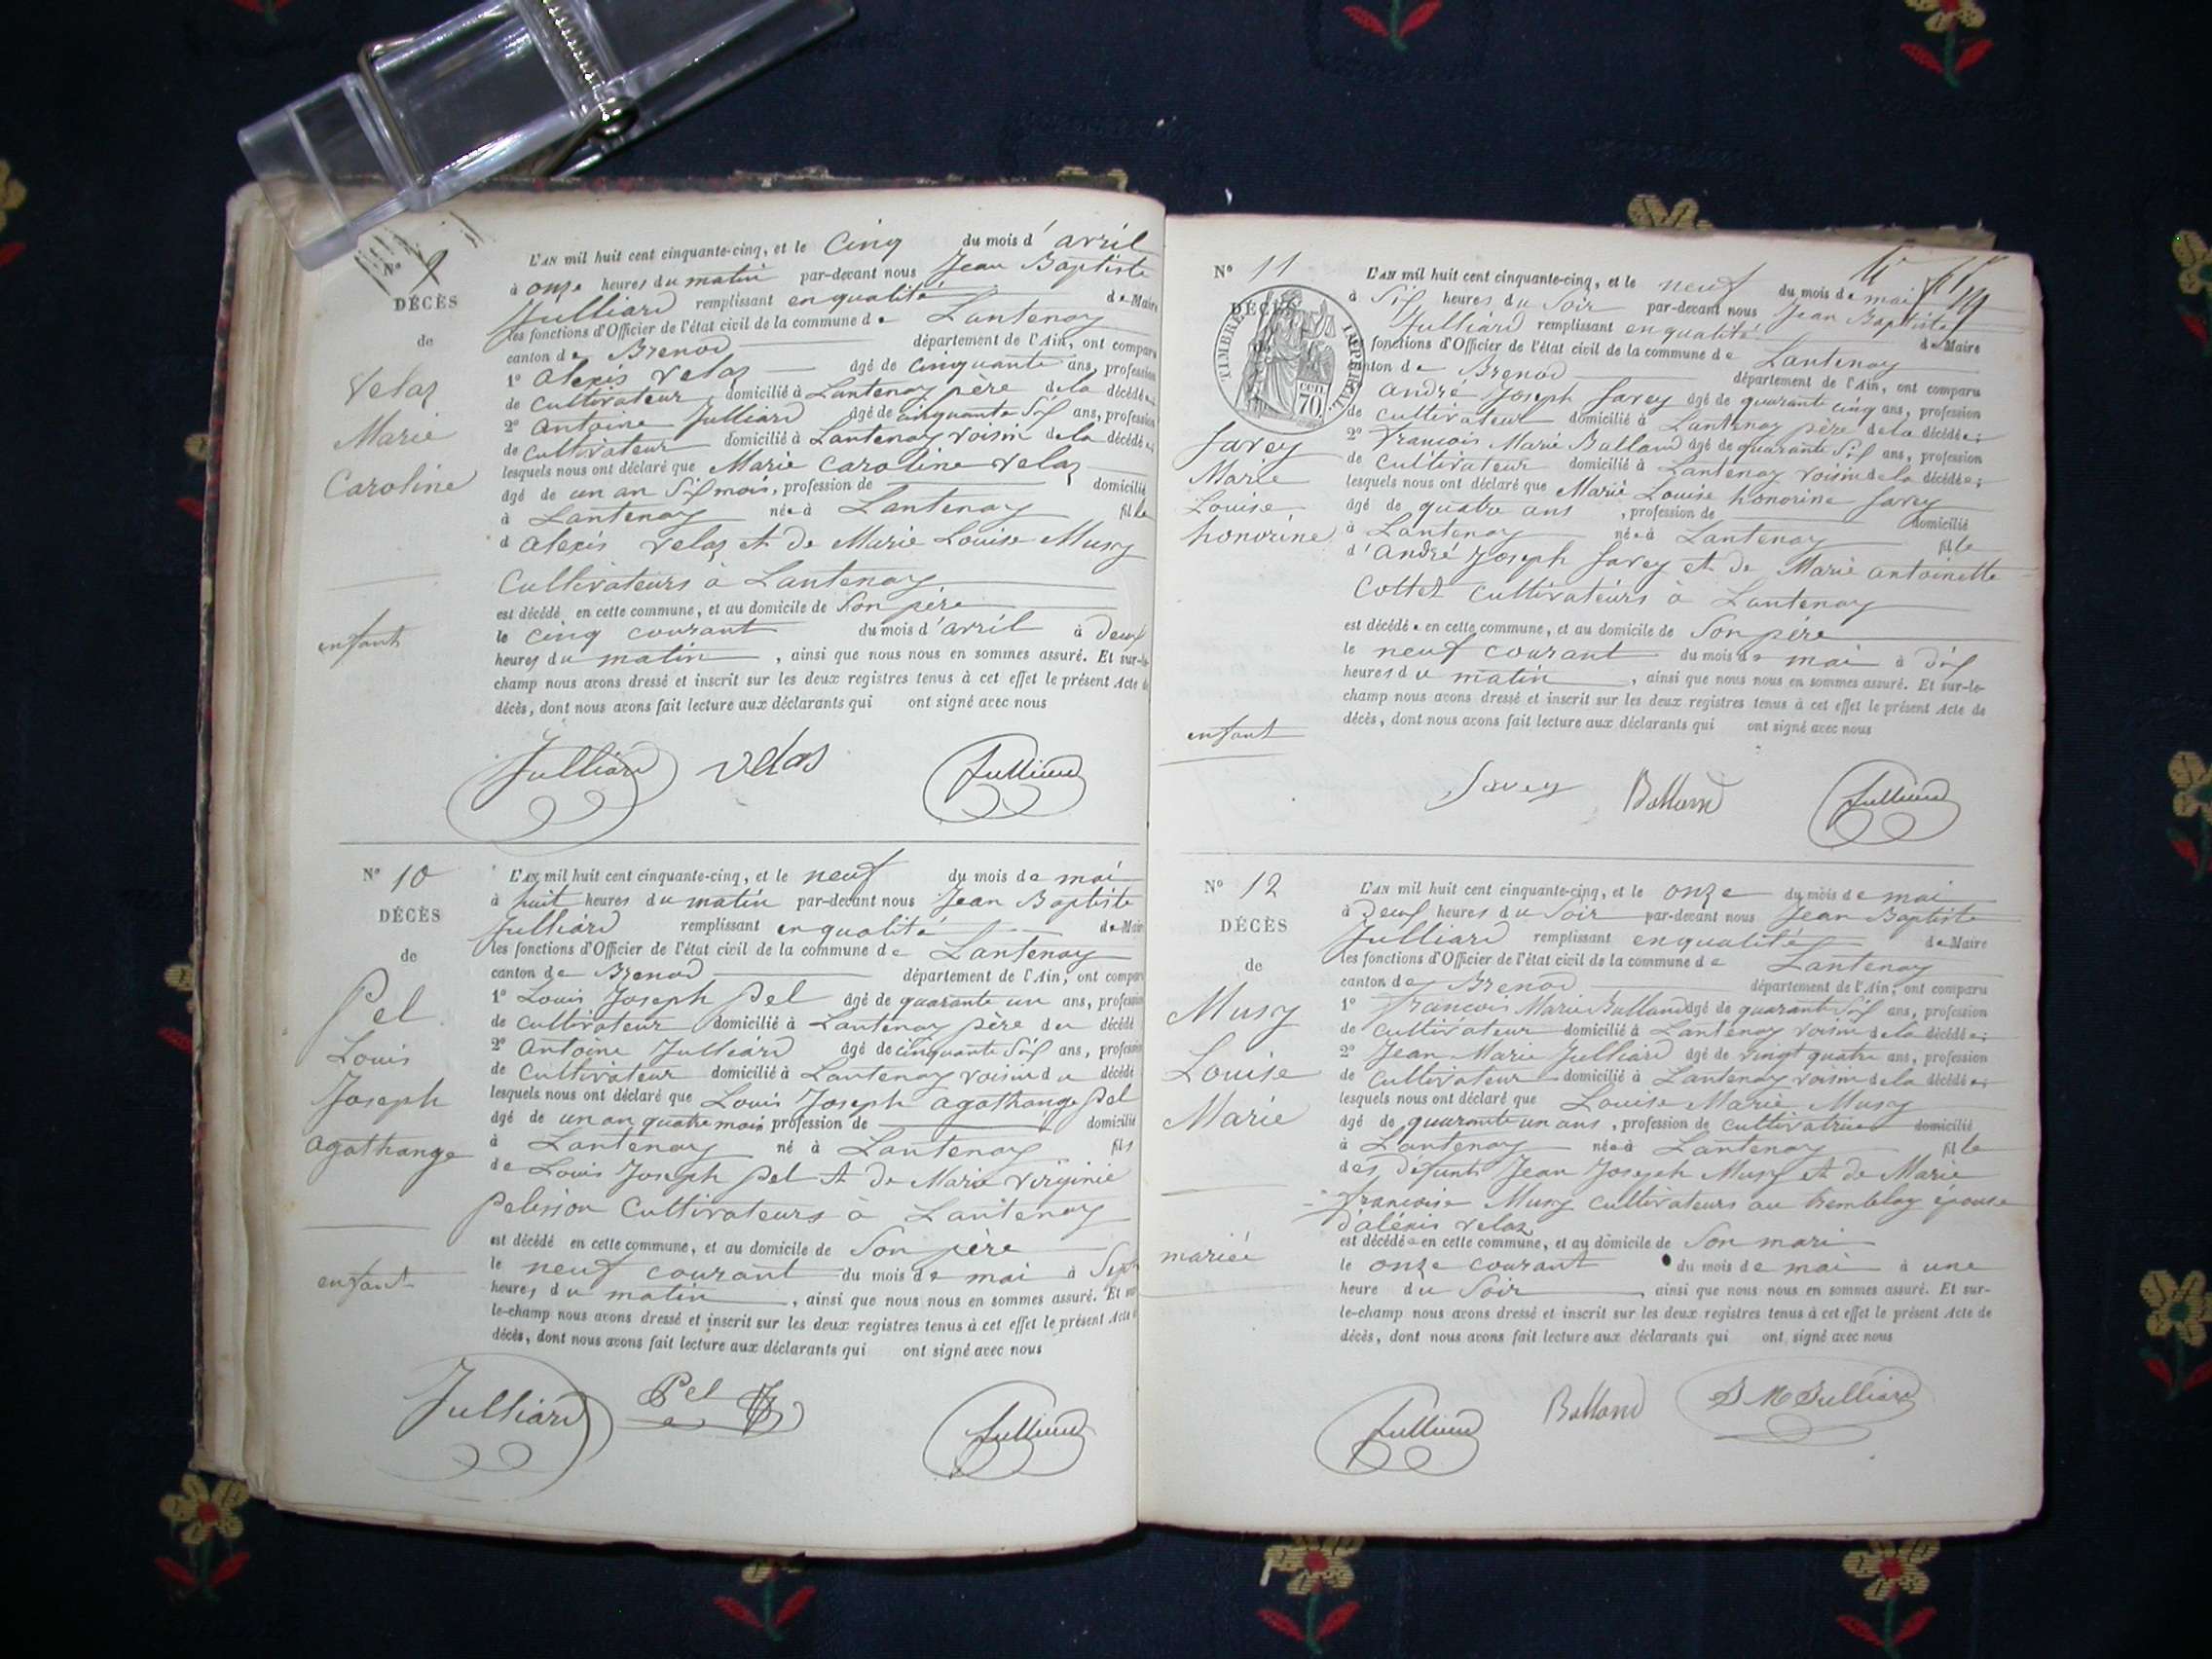 N° 9
DÉCÈS
de
Velaz
Marie
Caroline
enfant
L'AN mil huit cent cinquante-cinq, et le Cinq du mois d'avril
à onze heures du matin par-devant nous Jean Baptiste
Julliard remplissant en qualité de Maire
les fonctions d'Officier de l'état civil de la commune de Lantenay
canton de Brenod département de l'Ain, ont comparu
1° Alexis Velaz âgé de cinquante ans, profession
de Cultivateur, domicilié à Lantenay père de la décédée
2° Antoine Julliard âgé de cinquante Six ans, profession
de Cultivateur domicilié à Lantenay voisin de la décédée
lesquels nous ont déclaré que Marie Caroline Velaz
âgé de un an Six mois, profession de domicilié
à Lantenay née à Lantenay fille
d'Alexis Velaz et de Marie Louise Musy
Cultivateurs à Lantenay
est décédé en cette commune, et au domicile de Son père
le cinq courant du mois d'avril à deux
heures du matin, ainsi que nous nous en sommes assuré. Et sur-le-
champ nous avons dressé et inscrit sur les deux registres tenus à cet effet le présent Acte de
décès, dont nous avons fait lecture aux déclarants qui ont signé avec nous
Julliard velas Julliard
N° 10
DÉCÈS
de
Pel
Louis
Joseph
agathange
enfant
L'AN mil huit cent cinquante-cinq, et le neuf du mois de mai
à huit heures du matin par-devant nous Jean Baptiste
Julliard remplissant en qualité de Maire
les fonctions d'Officier de l'état civil de la commune de Lantenay
canton de Brenod département de l'Ain, ont comparu
1° Louis Joseph Pel âgé de quarante un ans, profession
de Cultivateur domicilié à Lantenay père du décédé
2° Antoine Julliard âgé de cinquante Six ans, profession
de Cultivateur domicilié à Lantenay voisin du décédé
lesquels nous ont déclaré que Louis Joseph agathange Pel
âgé de un an quatre mois profession de domicilié
à Lantenay né à Lantenay fils
de Louis Joseph Pel et de Marie Virginie
Pelisson Cultivateurs à Lantenay
est décédé en cette commune, et au domicile de Son père
le neuf courant du mois de mai à Sept
heures du matin, ainsi que nous nous en sommes assuré. Et sur-
le-champ nous avons dressé et inscrit sur les deux registres tenus à cet effet le présent Acte de
décès, dont nous avons fait lecture aux déclarants qui ont signé avec nous
Julliard Pel Julliard
N° 11
DÉCÈS
TIMBRE IMPÉRIAL
CEN. 70
Savey
Marie
Louise
honorine
enfant
L'AN mil huit cent cinquante-cinq, et le neuf du mois de mai
à Six heures du Soir par-devant nous Jean Baptiste
Julliard remplissant en qualité de Maire
fonctions d'Officier de l'état civil de la commune de Lantenay
canton de Brenod département de l'Ain, ont comparu
André Joseph Savey âgé de quarante cinq ans, profession
de Cultivateur domicilié à Lantenay père de la décédée;
2° François Marie Balland âgé de quarante Six ans, profession
de Cultivateur domicilié à Lantenay voisin de la décédée;
lesquels nous ont déclaré que Marie Louise honorine Savey
âgé de quatre ans, profession de domicilié
à Lantenay née à Lantenay fille
d'André Joseph Savey et de Marie antoinette
Cottet Cultivateurs à Lantenay
est décédée en cette commune, et au domicile de Son père
le neuf courant du mois de mai à dix
heures du matin, ainsi que nous nous en sommes assuré. Et sur-le-
champ nous avons dressé et inscrit sur les deux registres tenus à cet effet le présent Acte de
décès, dont nous avons fait lecture aux déclarants qui ont signé avec nous
Savey Balland Julliard
N° 12
DÉCÈS
de
Musy
Louise
Marie
mariée
L'AN mil huit cent cinquante-cinq, et le onze du mois de mai
à Deux heures du Soir par-devant nous Jean Baptiste
Julliard remplissant en qualité de Maire
les fonctions d'Officier de l'état civil de la commune de Lantenay
canton de Brenod département de l'Ain, ont comparu
1° François Marie Balland âgé de quarante Six ans, profession
de Cultivateur domicilié à Lantenay voisin de la décédée;
2° Jean Marie Julliard âgé de vingt quatre ans, profession
de Cultivateur domicilié à Lantenay voisin de la décédée;
lesquels nous ont déclaré que Louise Marie Musy
âgé de quarante un ans, profession de cultivatrice domicilié
à Lantenay née à Lantenay fille
des défunts Jean Joseph Musy et de Marie
françoise Musy cultivateurs au tremblay épouse
d'alexis velaz
est décédée en cette commune, et au domicile de Son mari
le onze courant du mois de mai à une
heure du Soir, ainsi que nous nous en sommes assuré. Et sur-
le-champ nous avons dressé et inscrit sur les deux registres tenus à cet effet le présent Acte de
décès, dont nous avons fait lecture aux déclarants qui ont signé avec nous
Julliard Balland J M Julliard